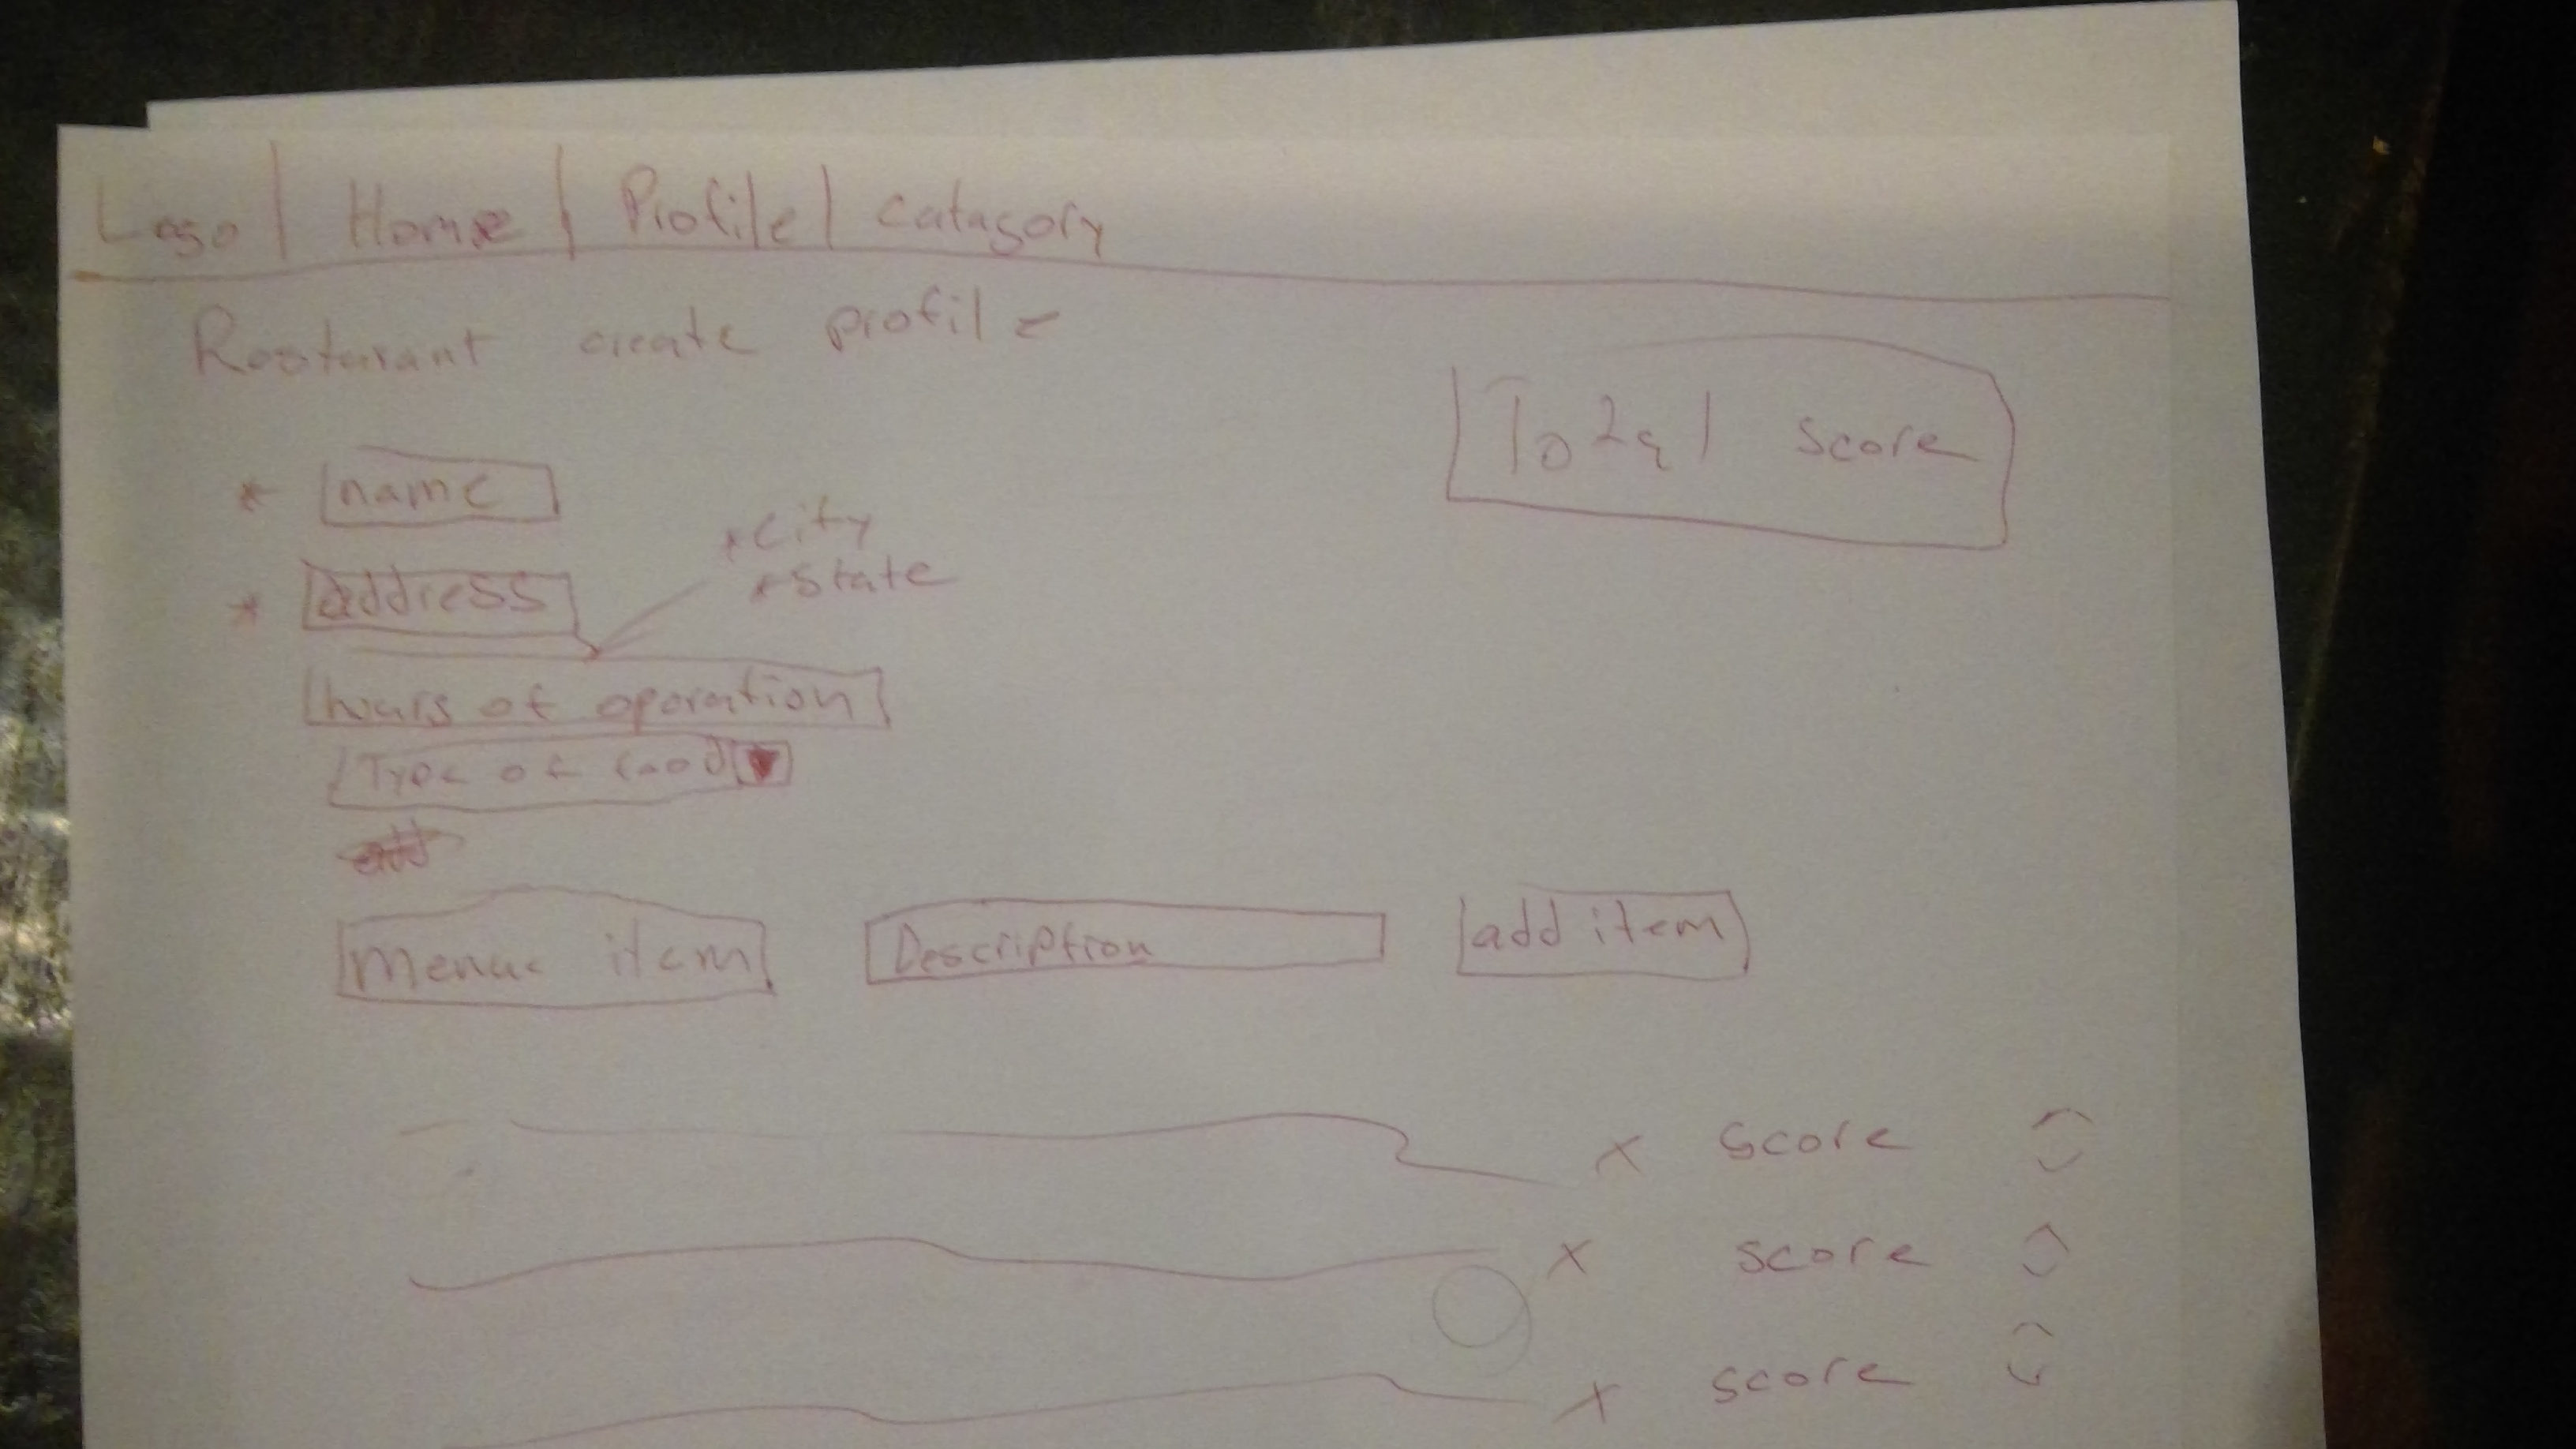 Logo | Home | Profile | Catagory
Resturant create profile
Total score
* name
* City
* State
* address
hours of operation
Type of food
Menue item Description add item
x score
x score
x score